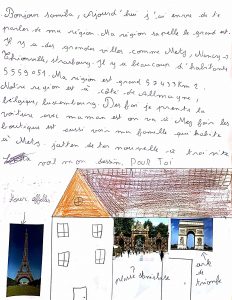 Bonjour samba, Aujourd'hui j'ai envie de te
parler de ma région Ma région sapelle le grand est.
Il y a des grandes villes comme Metz, Nancy,
Thionville, strasbourg. Il y a beaucoup d'habitants
5559051. Ma région est grand 57433Km2.
Notre région est a côté de Allmagne,
bélgique, luxembourg. Des fois je prends la
voiture avec maman est on va a Metz fair les
boutique et aussi voir ma famille qui habite
à Metz. jatten de tes nouvelle a
voi mon dessin. Pour Toi
tour effelle
place stanislas
ark de triomfe